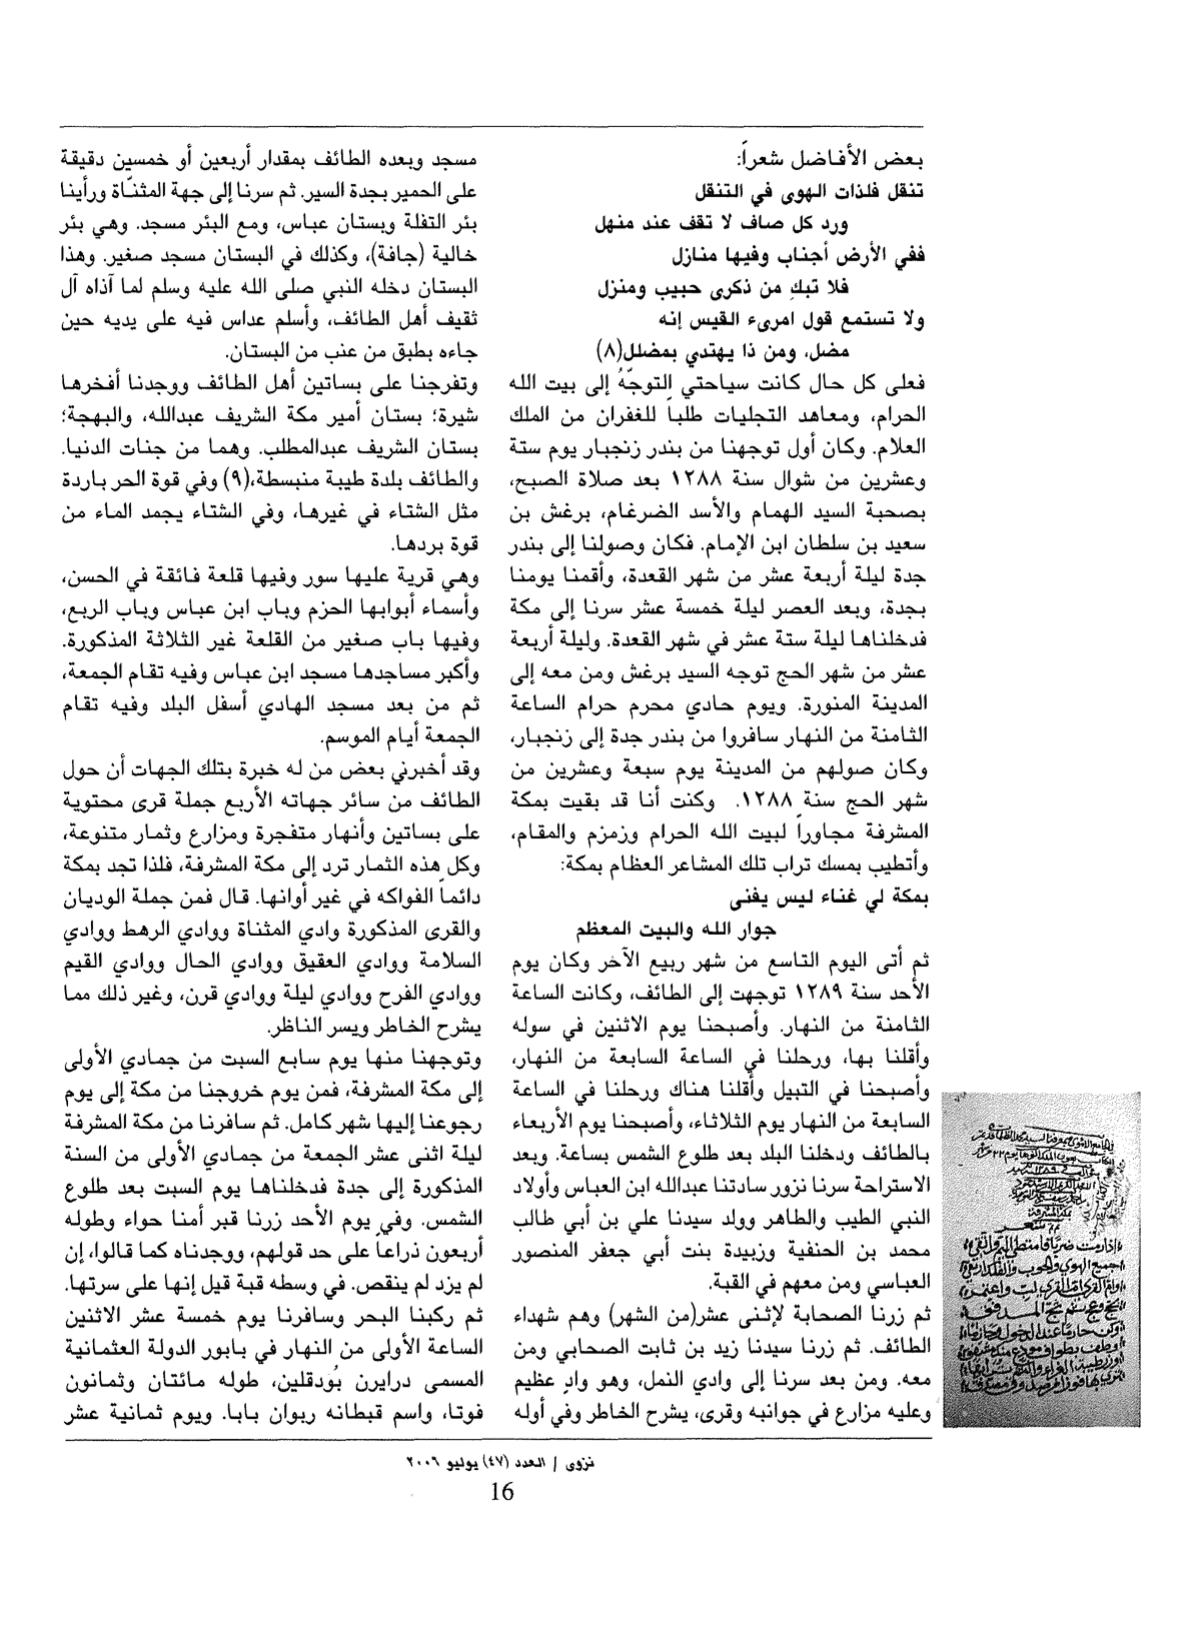 بعض الأفاضل شعراً:
تنقل فلذات الهوى في التنقل
ورد كل صاف لا تقف عند منهل
ففي الأرض أجناب وفيها منازل
فلا تبكِ من ذكرى حبيب ومنزل
ولا تستمع قول امرىء القيس إنه
مضل، ومن ذا يهتدي بمضلل(٨)
فعلى كل حال كانت سياحتي التوجّهُ إلى بيت الله
الحرام، ومعاهد التجليات طلباً للغفران من الملك
العلام. وكان أول توجهنا من بندر زنجبار يوم ستة
وعشرين من شوال سنة ١٢٨٨ بعد صلاة الصبح،
بصحبة السيد الهمام والأسد الضرغام، برغش بن
سعيد بن سلطان ابن الإمام. فكان وصولنا إلى بندر
جدة ليلة أربعة عشر من شهر القعدة، وأقمنا يومنا
بجدة، وبعد العصر ليلة خمسة عشر سرنا إلى مكة
فدخلناها ليلة ستة عشر في شهر القعدة. وليلة أربعة
عشر من شهر الحج توجه السيد برغش ومن معه إلى
المدينة المنورة. ويوم حادي محرم حرام الساعة
الثامنة من النهار سافروا من بندر جدة إلى زنجبار،
وكان صولهم من المدينة يوم سبعة وعشرين من
شهر الحج سنة ١٢٨٨. وكنت أنا قد بقيت بمكة
المشرفة مجاوراً لبيت الله الحرام وزمزم والمقام،
وأتطيب بمسك تراب تلك المشاعر العظام بمكة:
بمكة لي غناء ليس يفنى
جوار الله والبيت المعظم
ثم أتى اليوم التاسع من شهر ربيع الآخر وكان يوم
الأحد سنة ١٢٨٩ توجهت إلى الطائف، وكانت الساعة
الثامنة من النهار. وأصبحنا يوم الاثنين في سوله
وأقلنا بها، ورحلنا في الساعة السابعة من النهار،
وأصبحنا في التبيل وأقلنا هناك ورحلنا في الساعة
السابعة من النهار يوم الثلاثاء، وأصبحنا يوم الأربعاء
بالطائف ودخلنا البلد بعد طلوع الشمس بساعة. وبعد
الاستراحة سرنا نزور سادتنا عبدالله ابن العباس وأولاد
النبي الطيب والطاهر وولد سيدنا علي بن أبي طالب
محمد بن الحنفية وزبيدة بنت أبي جعفر المنصور
العباسي ومن معهم في القبة.
ثم زرنا الصحابة لإثنى عشر(من الشهر) وهم شهداء
الطائف. ثم زرنا سيدنا زيد بن ثابت الصحابي ومن
معه. ومن بعد سرنا إلى وادي النمل، وهو وادٍ عظيم
وعليه مزارع في جوانبه وقرى، يشرح الخاطر وفي أوله
مسجد وبعده الطائف بمقدار أربعين أو خمسين دقيقة
على الحمير بجدة السير. ثم سرنا إلى جهة المثنّاة ورأينا
بئر التفلة وبستان عباس، ومع البئر مسجد. وهي بئر
خالية (جافة)، وكذلك في البستان مسجد صغير. وهذا
البستان دخله النبي صلى الله عليه وسلم لما آذاه آل
ثقيف أهل الطائف، وأسلم عداس فيه على يديه حين
جاءه بطبق من عنب من البستان.
وتفرجنا على بساتين أهل الطائف ووجدنا أفخرها
شيرة؛ بستان أمير مكة الشريف عبدالله، والبهجة؛
بستان الشريف عبدالمطلب. وهما من جنات الدنيا.
والطائف بلدة طيبة منبسطة،(٩) وفي قوة الحر باردة
مثل الشتاء في غيرها، وفي الشتاء يجمد الماء من
قوة بردها.
وهي قرية عليها سور وفيها قلعة فائقة في الحسن،
وأسماء أبوابها الحزم وباب ابن عباس وباب الربع،
وفيها باب صغير من القلعة غير الثلاثة المذكورة.
وأكبر مساجدها مسجد ابن عباس وفيه تقام الجمعة،
ثم من بعد مسجد الهادي أسفل البلد وفيه تقام
الجمعة أيام الموسم.
وقد أخبرني بعض من له خبرة بتلك الجهات أن حول
الطائف من سائر جهاته الأربع جملة قرى محتوية
على بساتين وأنهار متفجرة ومزارع وثمار متنوعة،
وكل هذه الثمار ترد إلى مكة المشرفة، فلذا تجد بمكة
دائماً الفواكه في غير أوانها. قال فمن جملة الوديان
والقرى المذكورة وادي المثناة ووادي الرهط ووادي
السلامة ووادي العقيق ووادي الحال ووادي القيم
ووادي الفرح ووادي ليلة ووادي قرن، وغير ذلك مما
يشرح الخاطر ويسر الناظر.
وتوجهنا منها يوم سابع السبت من جمادي الأولى
إلى مكة المشرفة، فمن يوم خروجنا من مكة إلى يوم
رجوعنا إليها شهر كامل. ثم سافرنا من مكة المشرفة
ليلة اثنى عشر الجمعة من جمادي الأولى من السنة
المذكورة إلى جدة فدخلناها يوم السبت بعد طلوع
الشمس. وفي يوم الأحد زرنا قبر أمنا حواء وطوله
أربعون ذراعاً على حد قولهم، ووجدناه كما قالوا، إن
لم يزد لم ينقص. في وسطه قبة قيل إنها على سرتها.
ثم ركبنا البحر وسافرنا يوم خمسة عشر الاثنين
الساعة الأولى من النهار في بابور الدولة العثمانية
المسمى درايرن بُودقلين، طوله مائتان وثمانون
فوتا، واسم قبطانه ربوان بابا. ويوم ثمانية عشر
نزوى / العدد (٤٧) يوليو ٢٠٠٦
16